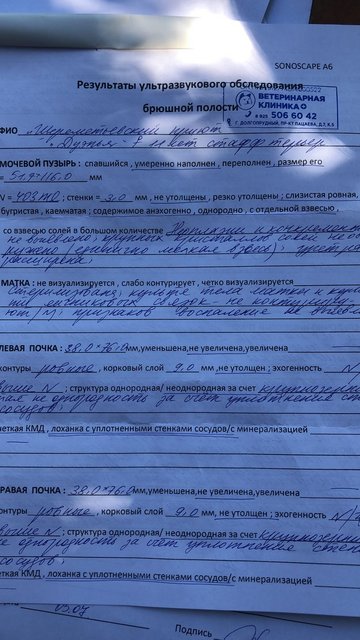 SONOSCAPE A6
Результаты ультразвукового обследования
брюшной полости
ВЕТЕРИНАРНАЯ
КЛИНИКА
8 925 506 60 42
Г. ДОЛГОПРУДНЫЙ, ПР-КТ ПАЦАЕВА, Д.7, К.5
ФИО „Шереметьевский приют"
МОЧЕВОЙ ПУЗЫРЬ : спавшийся , умеренно наполнен , переполнен , размер его
= 51.9*116.0 мм
V = 403 ml ; стенки = 3.0 мм , не утолщены , резко утолщены ; слизистая ровная,
бугристая , каемчатая ; содержимое анэхогенно , однородно , с отдельной взвесью ,
со взвесью солей в большом количестве
не выявлено; крупных кристаллов солей не обна-
ружено (единично мелкая взвесь);
расширена;
МАТКА : не визуализируется , слабо контурирует , четко визуализируется
стерилизована; культя тела матки и куль-
ти яичниковых связок не контуриру-
ют (N) признаков воспаления не выявлено
ЛЕВАЯ ПОЧКА : 38.0*76.0 мм,уменьшена,не увеличена,увеличена
контуры ровные , корковый слой 9.0 мм ,не утолщен ; эхогенность N/
выше N ; структура однородная/ неоднородная за счет
ная неоднородность за счет уплотнения стенок
сосудов;
четкая КМД , лоханка с уплотненными стенками сосудов/с минерализацией
ПРАВАЯ ПОЧКА : 38.0*76.0 мм,уменьшена,не увеличена,увеличена
контуры ровные , корковый слой 9.0 мм, не утолщен ; эхогенность N/
выше N ; структура однородная/ неоднородная за счет
неоднородность за счет уплотнения стенок
сосудов;
четкая КМД , лоханка с уплотненными стенками сосудов/с минерализацией
03.07
Подпись